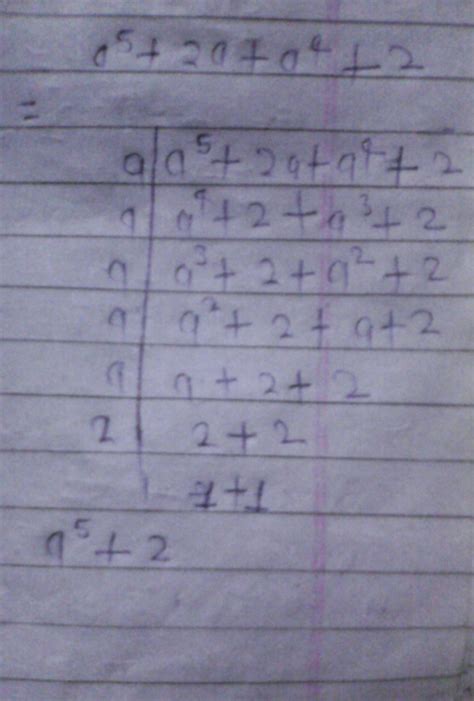 a⁵ + 2a + a⁴ + 2
=
a | a⁵ + 2a + a⁴ + 2
a | a⁴ + 2 + a³ + 2
a | a³ + 2 + a² + 2
a | a² + 2 + a + 2
a | a + 2 + 2
2 | 2 + 2
| 1 + 1
a⁵ + 2